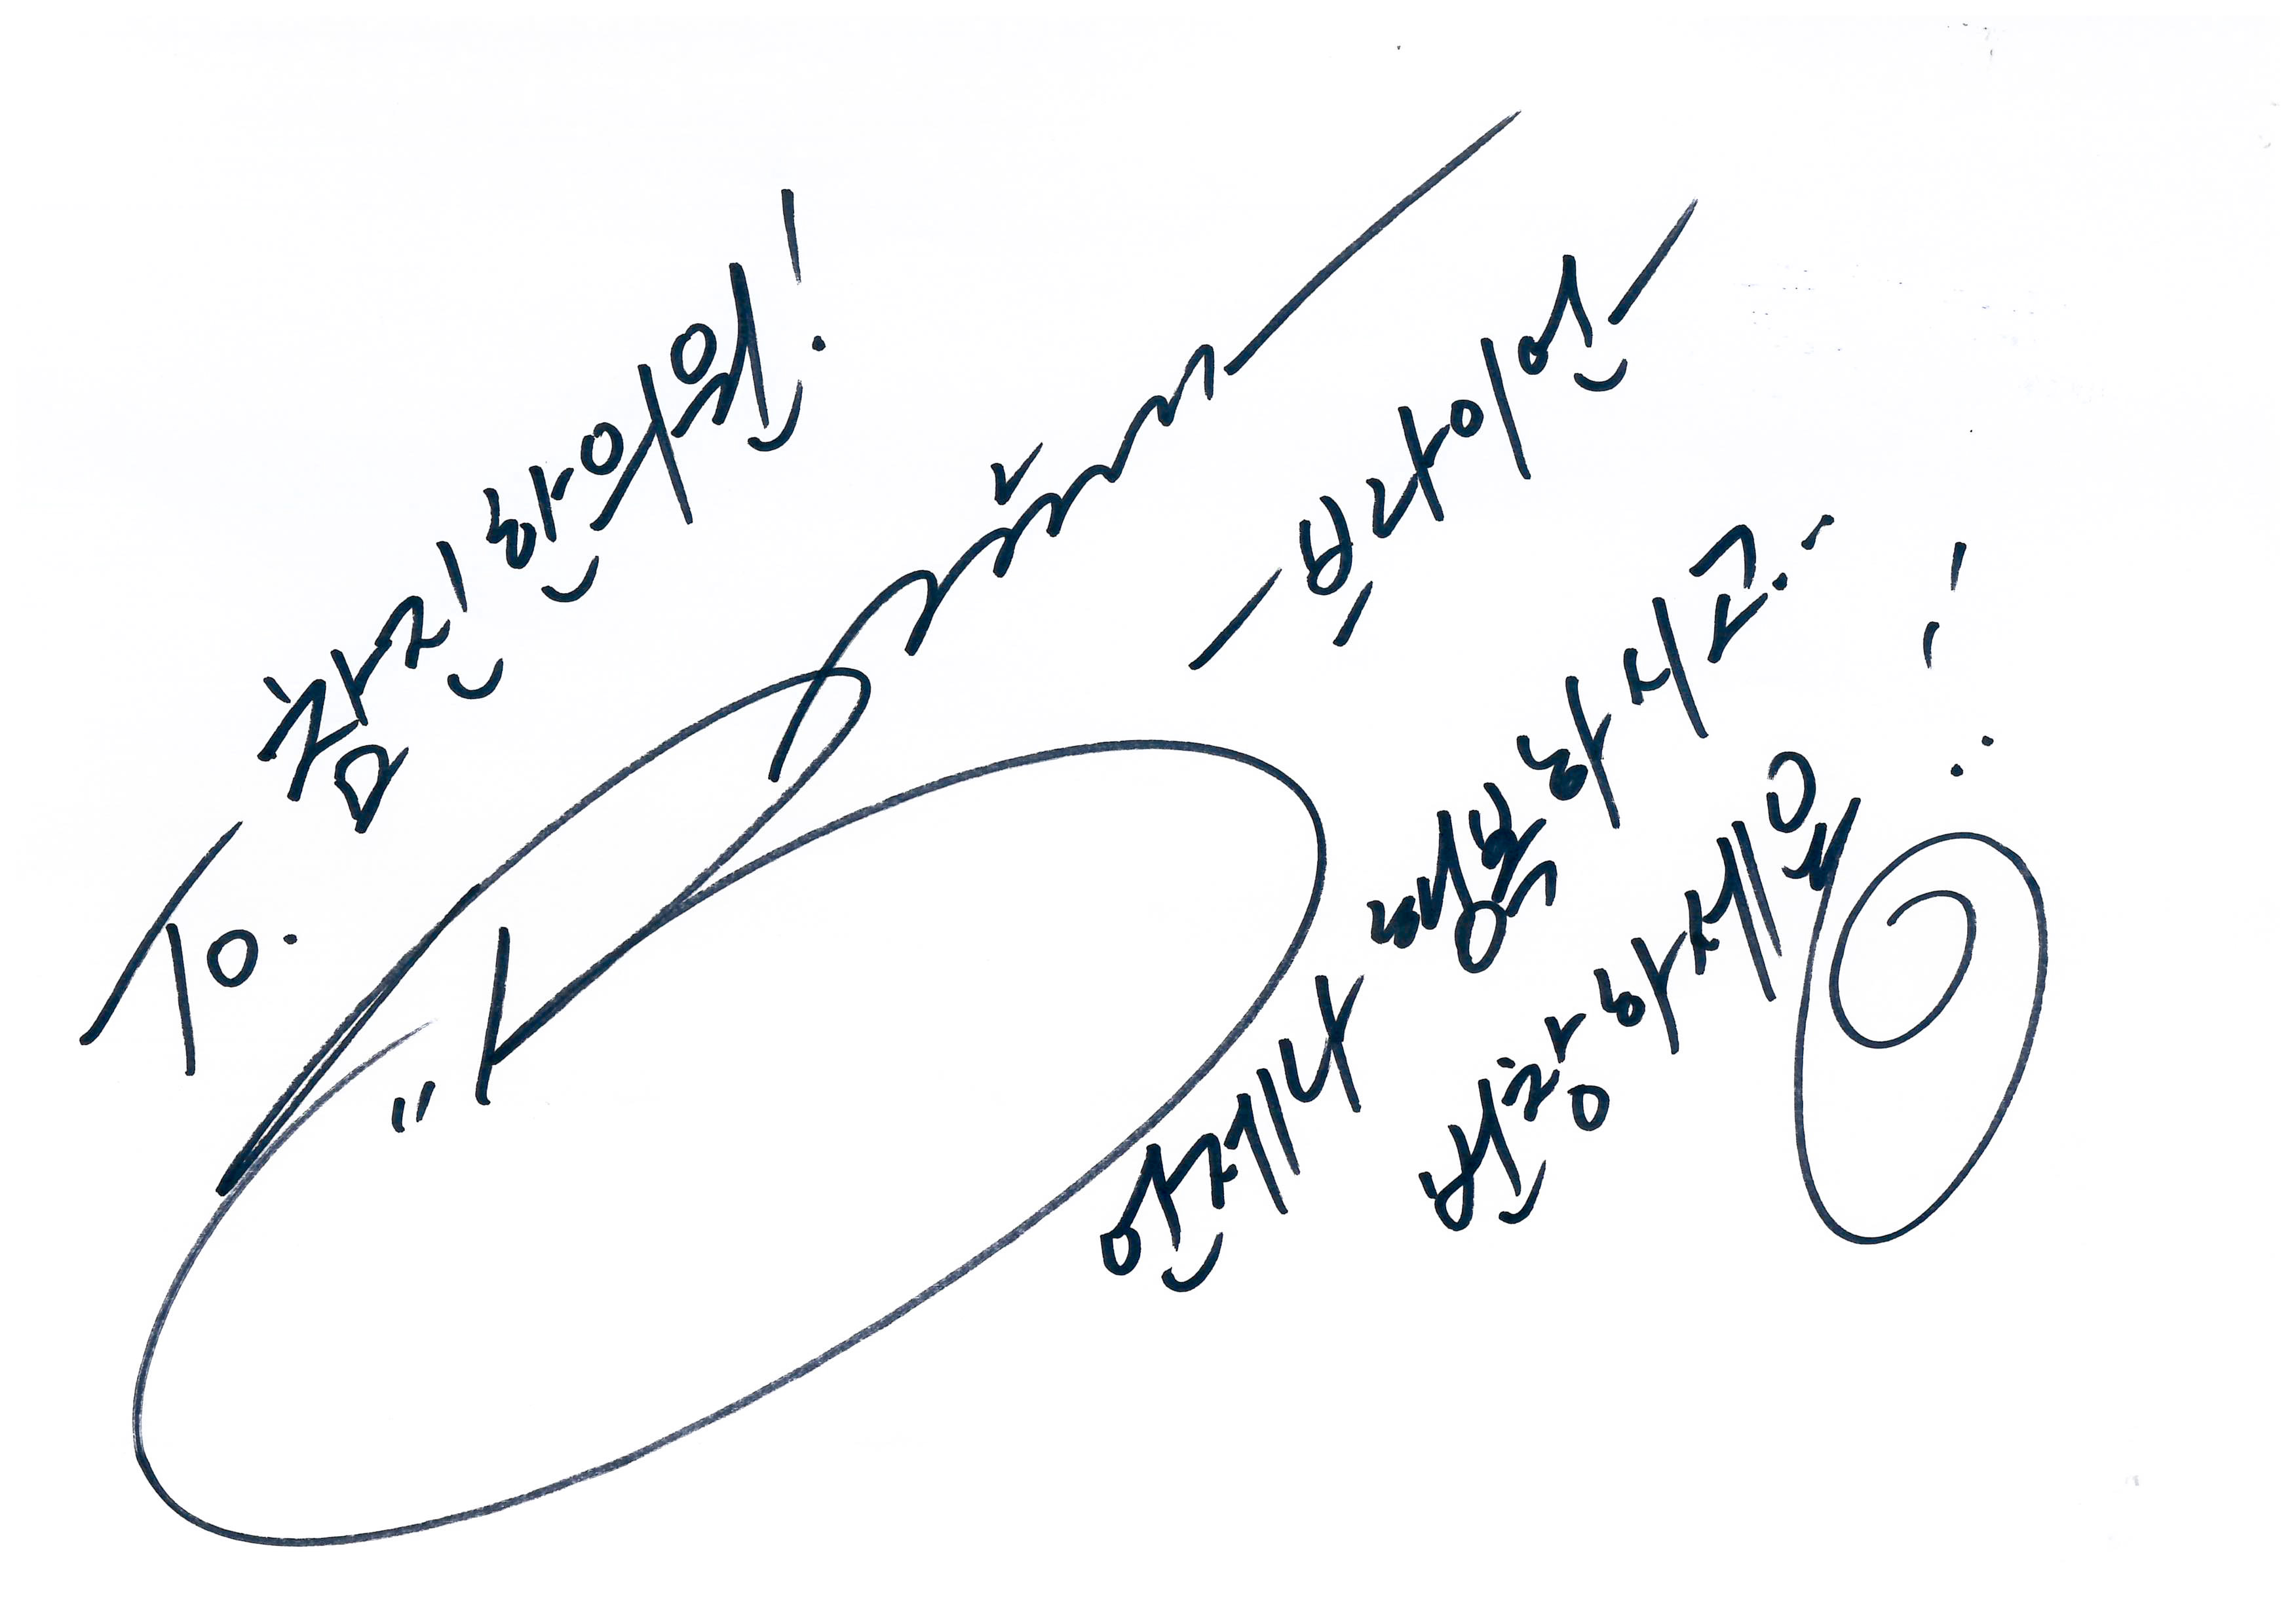 To. 참진한의원!
- 브라이언 -
언제나 행복하시고..
번창하세요!!